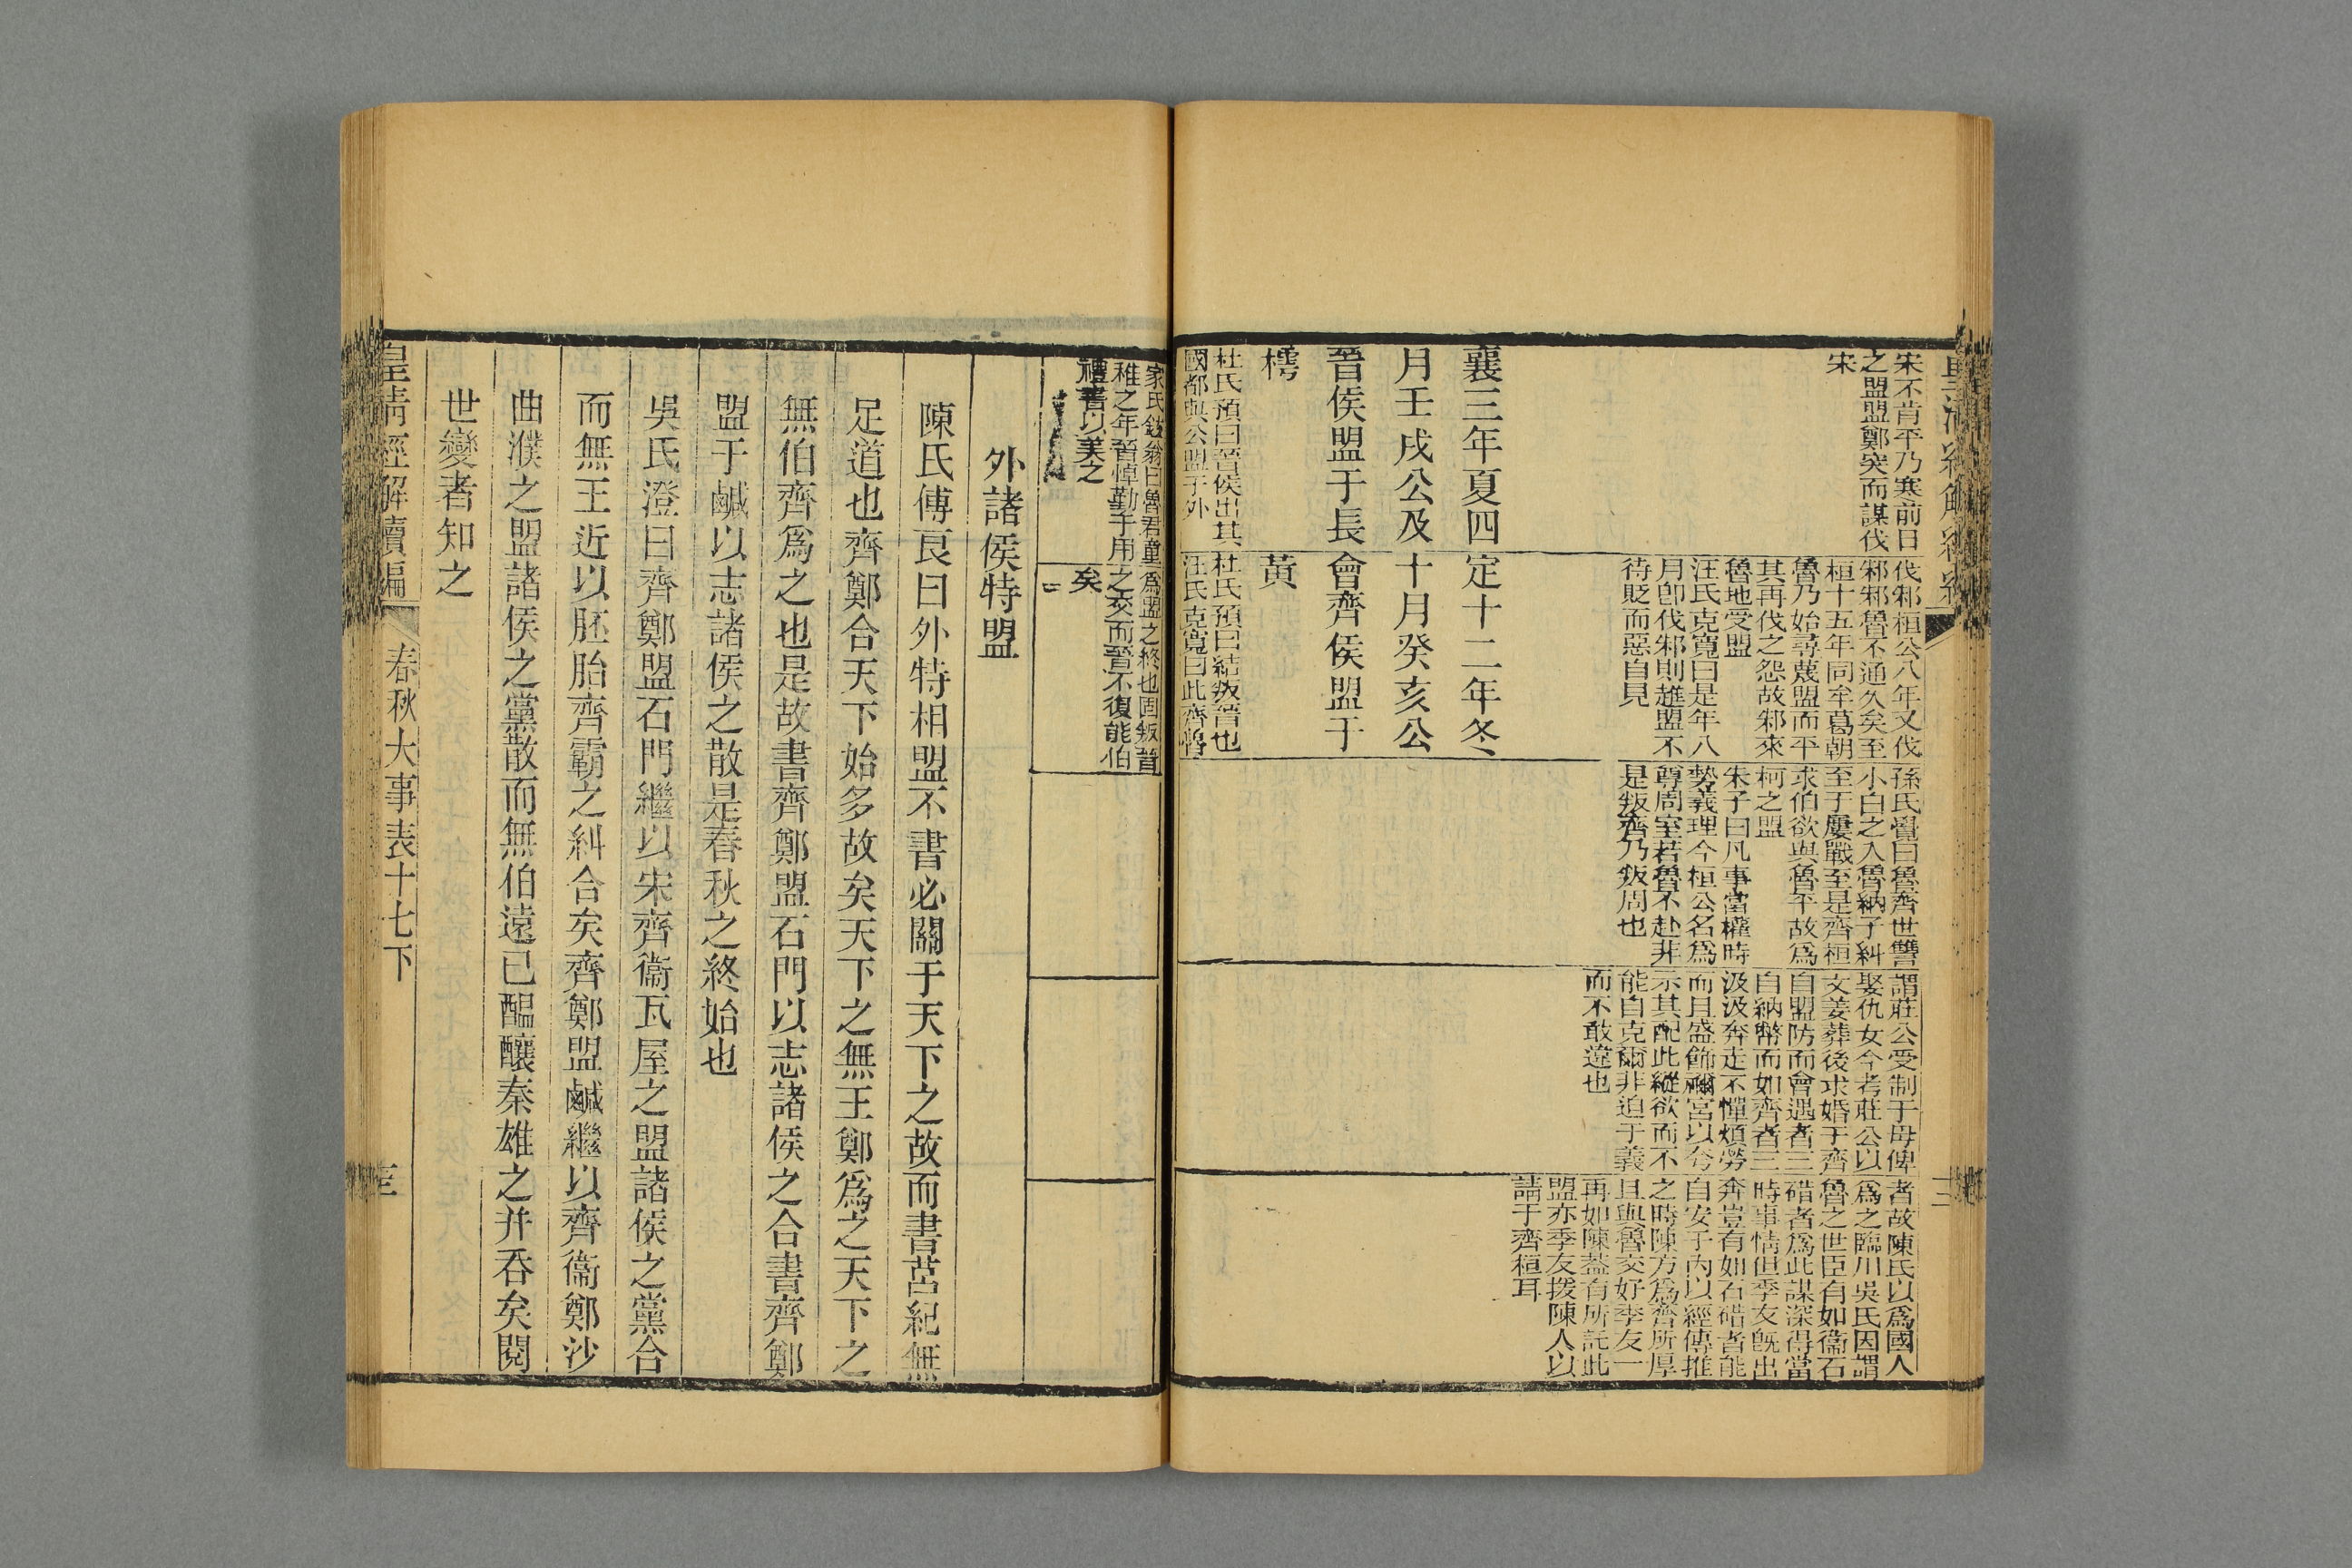 宋不肯平乃寒前日
之盟盟鄭突而謀伐
宋
伐邾桓公八年又伐
邾邾魯不通久矣至
桓十五年同牟葛朝
魯乃始尋蔑盟而平
其再伐之怨故邾來
魯地受盟
汪氏克寬曰是年八
月卽伐邾則趡盟不
待貶而惡自見
孫氏覺曰魯齊世讐
小白之入魯納子糾
至于屢戰至是齊桓
求伯欲與魯平故爲
柯之盟
朱子曰凡事當權時
勢義理今桓公名爲
尊周室若魯不赴非
是叛齊乃叛周也
謂莊公受制于母俾
娶仇女今考莊公以
文姜葬後求婚于齊
自盟防而會遇者三
自納幣而如齊者三
汲汲奔走不憚煩勞
而且盛飾禰宮以夸
示其配此縱欲而不
能自克爾非迫于義
而不敢違也
者故陳氏以爲國人
爲之臨川吳氏因謂
魯之世臣有如衞石
碏者爲此謀深得當
時事情但季友旣出
奔豈有如石碏者能
自安于內以經傳推
之時陳方爲齊所厚
且與魯交好季友一
再如陳蓋有所託此
盟亦季友援陳人以
請于齊桓耳
襄三年夏四
月壬戌公及
晉侯盟于長
樗
杜氏預曰晉侯出其
國都與公盟于外
定十二年冬
十月癸亥公
會齊侯盟于
黃
杜氏預曰結叛晉也
汪氏克寬曰此齊魯
家氏鉉翁曰魯君童
稚之年晉悼勤于用
禮書以美之
爲盟之終也固叛晉
之交而晉不復能伯
矣
外諸侯特盟
陳氏傅良曰外特相盟不書必關于天下之故而書莒紀無
足道也齊鄭合天下始多故矣天下之無王鄭爲之天下之
無伯齊爲之也是故書齊鄭盟石門以志諸侯之合書齊鄭
盟于鹹以志諸侯之散是春秋之終始也
吳氏澄曰齊鄭盟石門繼以宋齊衞瓦屋之盟諸侯之黨合
而無王近以胚胎齊霸之糾合矣齊鄭盟鹹繼以齊衞鄭沙
曲濮之盟諸侯之黨散而無伯遠已醞釀秦雄之并吞矣閱
世變者知之
皇淸經解續編
春秋大事表十七下